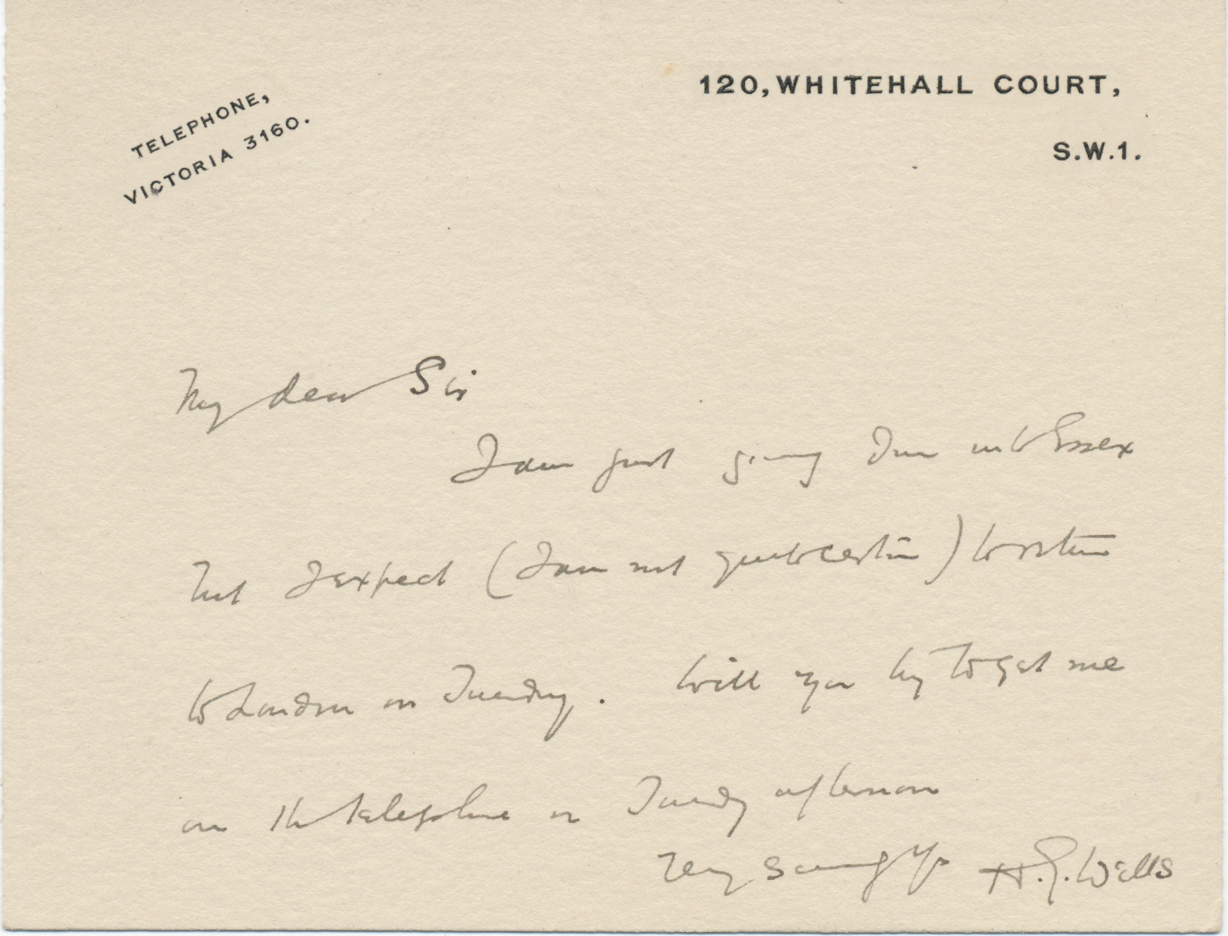 TELEPHONE,
VICTORIA 3160.
120, WHITEHALL COURT,
S.W.1.
My dear Sir
I am just going down into Essex
but I expect (I am not quite certain) to return
to London on Tuesday. Will you try to get me
on the telephone on Tuesday afternoon
Very H. G. Wells